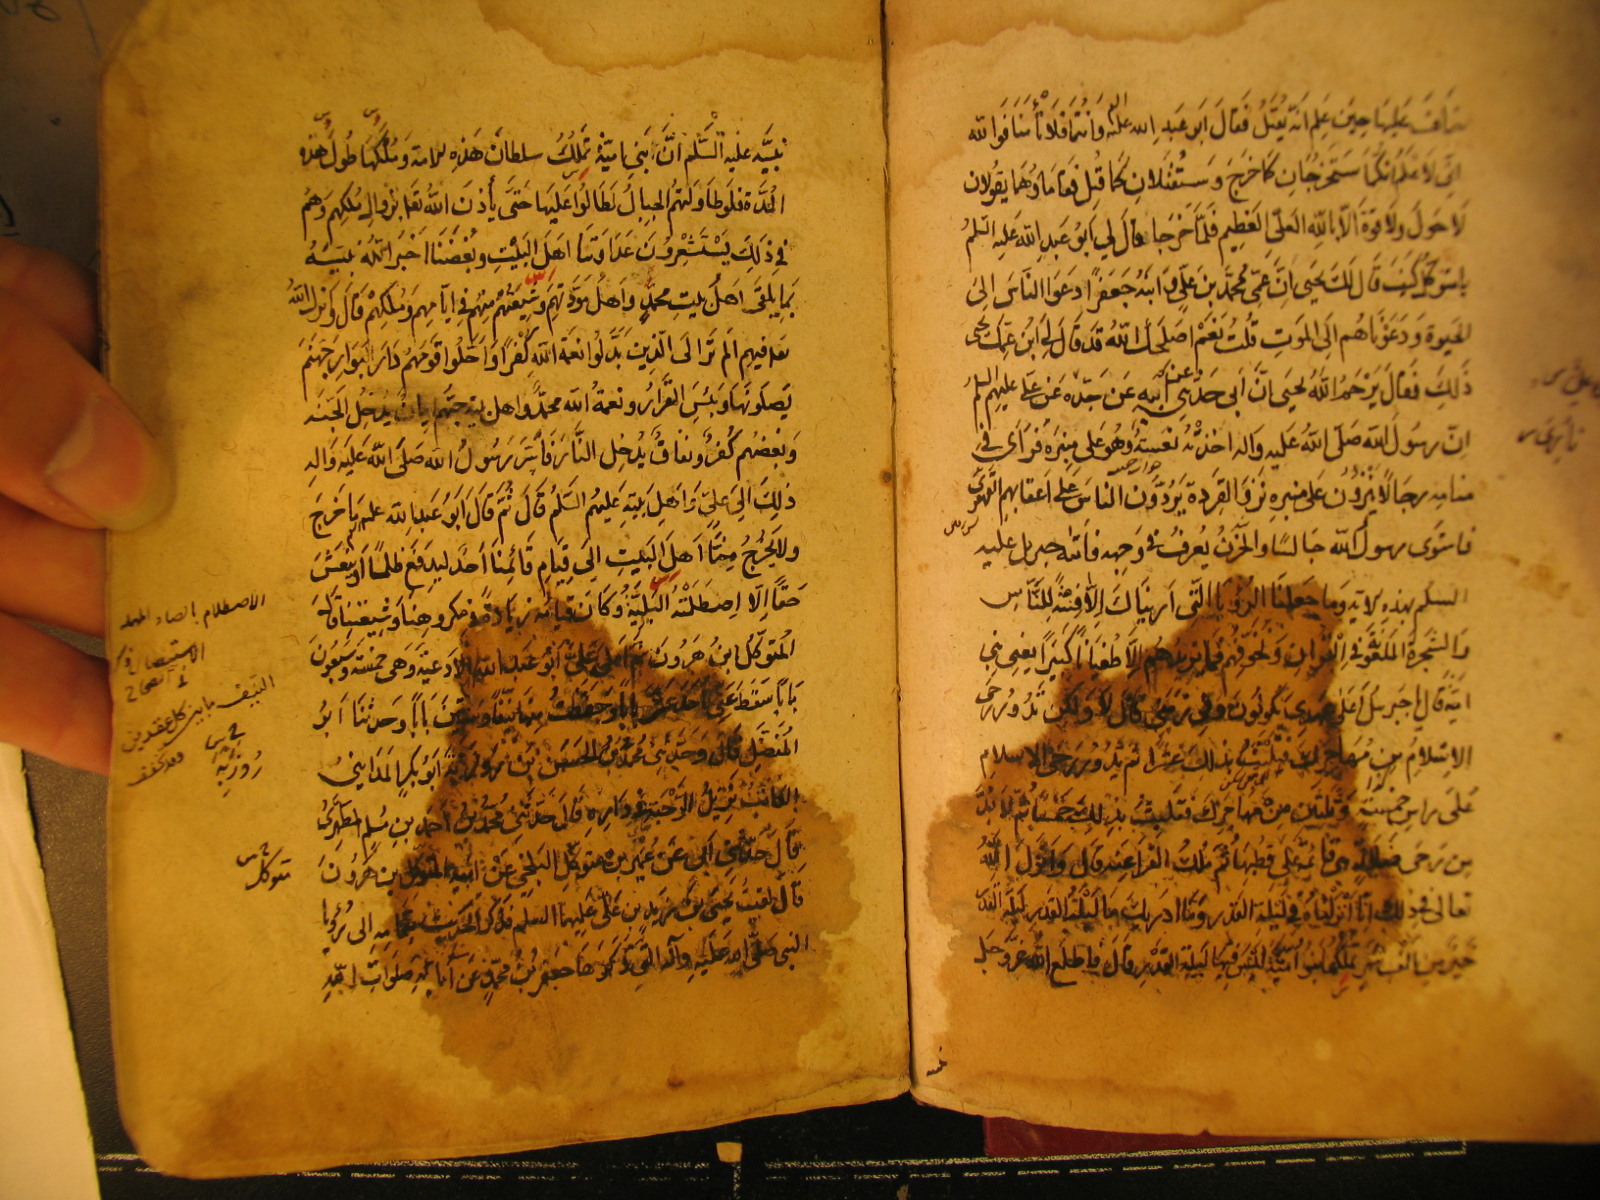 عليها حين علم انه يقتل فقال ابو عبد الله عليه السلم وانتما فلا تأمنا فوالله
اني لاعلم انكما ستخرجان كما خرج وستقتلان كما قتل فقاما وهما يقولان
لا حول ولا قوة الا بالله العلي العظيم فلما خرجا قال لي ابو عبد الله عليه السلم
يا متوكل كيف قال لك يحيى ان عمي محمد بن علي وابنه جعفرا دعوا الناس الى
الحيوة ودعوناهم الى الموت قلت نعم اصلحك الله قد قال لي ابن عمك يحيى
ذلك فقال يرحم الله يحيى ان ابي حدثني عن ابيه عن جده عن علي عليهم السلم
ان رسول الله صلى الله عليه واله اخذته نعسة وهو على منبره فراى في
منامه رجالا ينزون على منبره نزو القردة يردون الناس على اعقابهم القهقرى
فاستوى رسول الله جالسا والحزن يعرف في وجهه فاتاه جبريل عليه
السلم بهذه الاية وما جعلنا الرؤيا التي اريناك الا فتنة للناس
والشجرة الملعونة في القران ونخوفهم فما يزيدهم الا طغيانا كبيرا يعني بني
امية قال يا جبريل أعلى عهدي يكونون وفي زمني قال لا ولكن تدور رحى
الاسلام من مهاجرك فتلبث بذلك عشرا ثم تدور رحى الاسلام
على راس خمسة وثلثين من مهاجرك فتلبث بذلك خمسا ثم لا بد
من رحى ضلالة هي قائمة على قطبها ثم ملك الفراعنة قال وانزل الله
تعالى في ذلك انا انزلناه في ليلة القدر وما ادريك ما ليلة القدر ليلة القدر
خير من الف شهر تملكها بنو امية ليس فيها ليلة القدر قال فاطلع الله عز وجل
نبيه عليه السلم ان بني امية تملك سلطان هذه الامة وملكها طول هذه
المدة فلو طاولتهم الجبال لطالوا عليها حتى يأذن الله تعالى بزوال ملكهم وهم
في ذلك يستشعرون عداوتنا اهل البيت وبغضنا اخبر الله نبيه
بما يلقى اهل بيت محمد واهل مودتهم وشيعتهم منهم في ايامهم وملكهم قال وانزل الله
تعالى فيهم الم تر الى الذين بدلوا نعمة الله كفرا واحلوا قومهم دار البوار جهنم
يصلونها وبئس القرار ونعمة الله محمد واهل بيته حبهم ايمان يدخل الجنة
وبغضهم كفر ونفاق يدخل النار فاسر رسول الله صلى الله عليه واله
ذلك الى علي واهل بيته عليهم السلم قال ثم قال ابو عبد الله علم ما خرج
ولا يخرج منا اهل البيت الى قيام قائمنا احد ليدفع ظلما او ينعش
حقا الا اصطلمته البلية وكان قيامه زيادة في مكروهنا وشيعتنا قال
المتوكل ابن هرون ثم املى علي ابو عبد الله الادعية وهي خمسة وسبعون
بابا سقط عني احد عشر بابا وحفظت منها نيفا وستين بابا وحدثنا ابو
المفضل قال وحدثني محمد بن الحسن بن روزبة ابو بكر المدايني
الكاتب نزيل الرحبة في داره قال حدثني محمد بن احمد بن مسلم المطهري
قال حدثني ابي عن عمير بن متوكل البلخي عن ابيه المتوكل بن هرون
قال لقيت يحيى بن زيد بن علي عليهما السلم فذكر الحديث بتمامه الى رؤيا
النبي صلى الله عليه وآله التي ذكرها جعفر بن محمد عن آبائه صلوات الله
الاصطلام بالصاد المهملة
الاستيصال
روزبة
متوكل